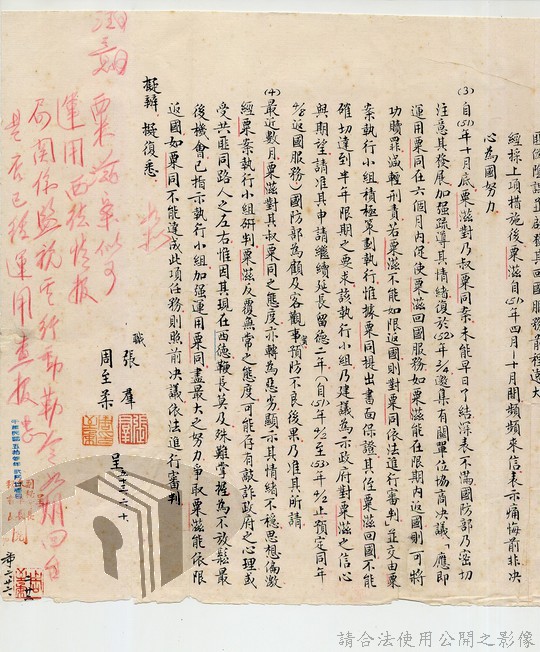 經採上項措施後粟滋自(51)年四月—十月間頻頻來信表示痛悔前非決
心為國努力
(3)自(51)年十月底粟滋對乃叔粟同案未能早日了結深表不滿國防部乃密切
注意其發展加强疏導其情緒復於(52)年 邀集有關單位協商決議、應即
運用粟同在六個月內促使粟滋回國服務如粟滋能在限期內返國則可將
功贖罪減輕刑責若粟滋不能如限返國則對粟同依法進行審判」並交由粟
案執行小組積極策劃執行惟據粟同提出書面保證其侄粟滋回國不能
確切達到半年限期之要求該執行小組乃建議為示政府對粟滋之信心
與期望請准其申請繼續延長留德二年(自(51)年 至(53)年 止預定同年
返國服務)國防部為顧及客觀事實預防不良後果乃准其所請
(4)最近數月粟滋對其叔粟同之態度亦轉為惡劣顯示其情緒不穩思想偏激
經粟案執行小組研判粟滋反覆無常之態度可能存有敲詐政府之心理或
受共匪同路人之左右惟因其現在西德鞭長莫及殊難掌握為不放鬆最
後機會已指示執行小組加强運用粟同盡最大之努力爭取粟滋能依限
返國如粟同不能達成此項任務則照前決議依法進行審判
擬辦 擬復悉
職 張羣
周至柔
呈
粟滋案似可
運用西德情報
局關係監視其行動
請合法使用公開之影像